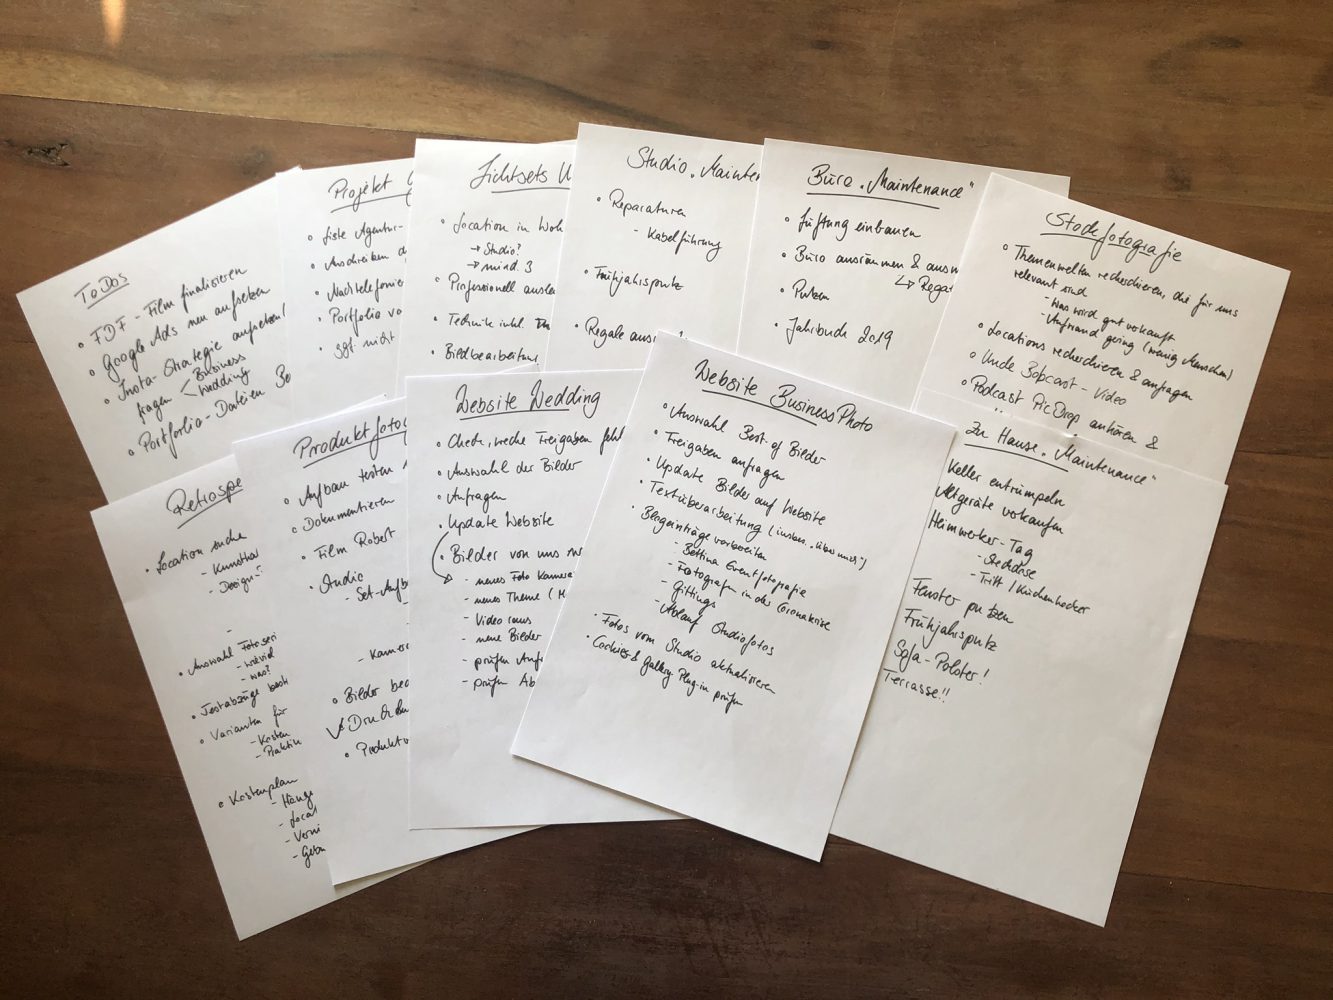 ToDos
• FDF - Film finalisieren
• Google Ads neu aufsetzen
• Insta-Strategie aufsetzen!
fragen < Business
Wedding
• Portfolio-Dateien
Projekt
• Liste Agentur-
• Anschreiben
• Nachtelefonie
• Portfolio vo
• ggf. nicht
Lichtsets
• Location in Woh
→ Studio?
→ mind. 3
• Professionell ausle
• Technik inkl.
• Bildbearbeitung
Studio „Mainten
• Reparaturen
- Kabelführung
• Frühjahrsputz
• Regale aus
Büro „Maintenance"
• Lüftung einbauen
• Büro ausräumen & ausm
↳ Rega
• Putzen
• Jahrbuch 2019
Stockfotografie
• Themenwelten recherchieren, die für uns
relevant sind
- was wird gut verkauft
- Aufwand gering (wenig Menschen)
• Locations recherchieren & anfragen
• Uncle Bobcast - Video
• Podcast PicDrop anhören &
Retrospe
• Location suche
- Kunsthar
- Design-
-
• Auswahl Fotoseri
- wieviel
- was?
• Testabzüge
• Varianten für
- Kosten
- Praktik
• Kostenplan
- Hänge
- Locat
- Verni
- Geträn
Produktfotog
• Aufbau testen
• Dokumentieren
• Film Robert
• Studio
- Set-Aufb
- Kamera
• Bilder bea
• Drucken
• Produktv
Website Wedding
• Check, welche Freigaben fehl
• Auswahl der Bilder
• Anfragen
• Update Website
• Bilder von uns
- neues Foto Kamera
- neues Theme (
- Video raus
- neue Bilder
- prüfen Anfr
- prüfen Ab
Website BusinessPhoto
• Auswahl Best of Bilder
• Freigaben anfragen
• Update Bilder auf Website
• Textüberarbeitung (insbes. „über uns")
• Blogeinträge vorbereiten
- Bettina Eventfotografie
- Fotografen in der Coronakrise
- Giftings
- Ablauf Studiofotos
• Fotos vom Studio aktualisieren
• Cookies & Gallery Plug-in prüfen
Zu Hause „Maintenance"
Keller entrümpeln
Altgeräte verkaufen
Heimwerker-Tag
- Steckdose
- Tritt / Küchenhocker
Fenster putzen
Frühjahrsputz
Sofa-Polster!
Terrasse!!